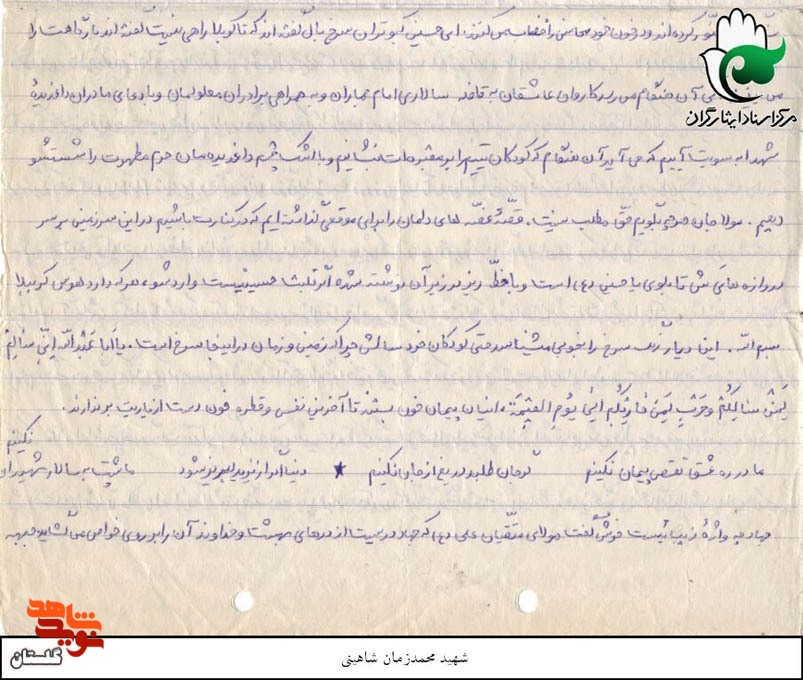 کرده‌اند و در خون خود محاسن را خضاب می‌کنند، ای حسین کبوتران سرخ بال گفته‌اند که تا کربلا راهی نیست گفته‌اند باز راهت را
آن هنگام می‌رسد کاروان عاشقان به قافله سالاری امام جماران و به همراهی برادران معلولمان و با دعای مادران داغدیده
شهدا به سویت آییم که می‌آید آن هنگام که کودکان یتیم را بر مقبره‌ات بنشانیم و با اشک چشم داغدیده‌مان حرم مطهرت را شستشو
دهیم. مولا جان هر چه بگویم فوق مطلب نیست. قصّهٔ غصّه های دلمان را برای موقعی گذاشته‌ایم که در کنارت باشیم در این سرزمین بر سر
دروازه هایش تابلوی یا حسین (ع) است و با خطّ ریز در زیر آن نوشته شده اگر قلبت حسینیست وارد شو، هر که دارد هوس کربلا
بسم الله. اینا دیار رنگ سرخ را خوب می‌شناسد حتی کودکان خردسالش چرا که زمین و زمان در اینجا سرخ است. یا اَبا عَبْدِ اللهِ اِنّی سِلْمٌ
لِمَنْ سالَمَکُمْ وَ حَرْبٌ لِمَنْ حارَبَکُمْ اِلی یَوْمِ الْقِیمَةِ، اینان پیمان خون بستند تا آخرین نفس و قطره خون دست از یاریت بر ندارند.
ما در ره عشق نقض پیمان نکنیم گر جان طلبد دریغ از جان نکنیم ★ دنیا اگر از یزید لبریز شود ما پشت به سالار شهیدان نکنیم
جهاد چه واژهٔ زیبائیست خوش گفت مولای متّقیان علی (ع) که جهاد دریست از درهای بهشت و خداوند آن را بر روی خواص می‌گشاید
مرکز اسناد ایثارگران
نوید شاهد
گلستان
شهید محمدزمان شاهینی